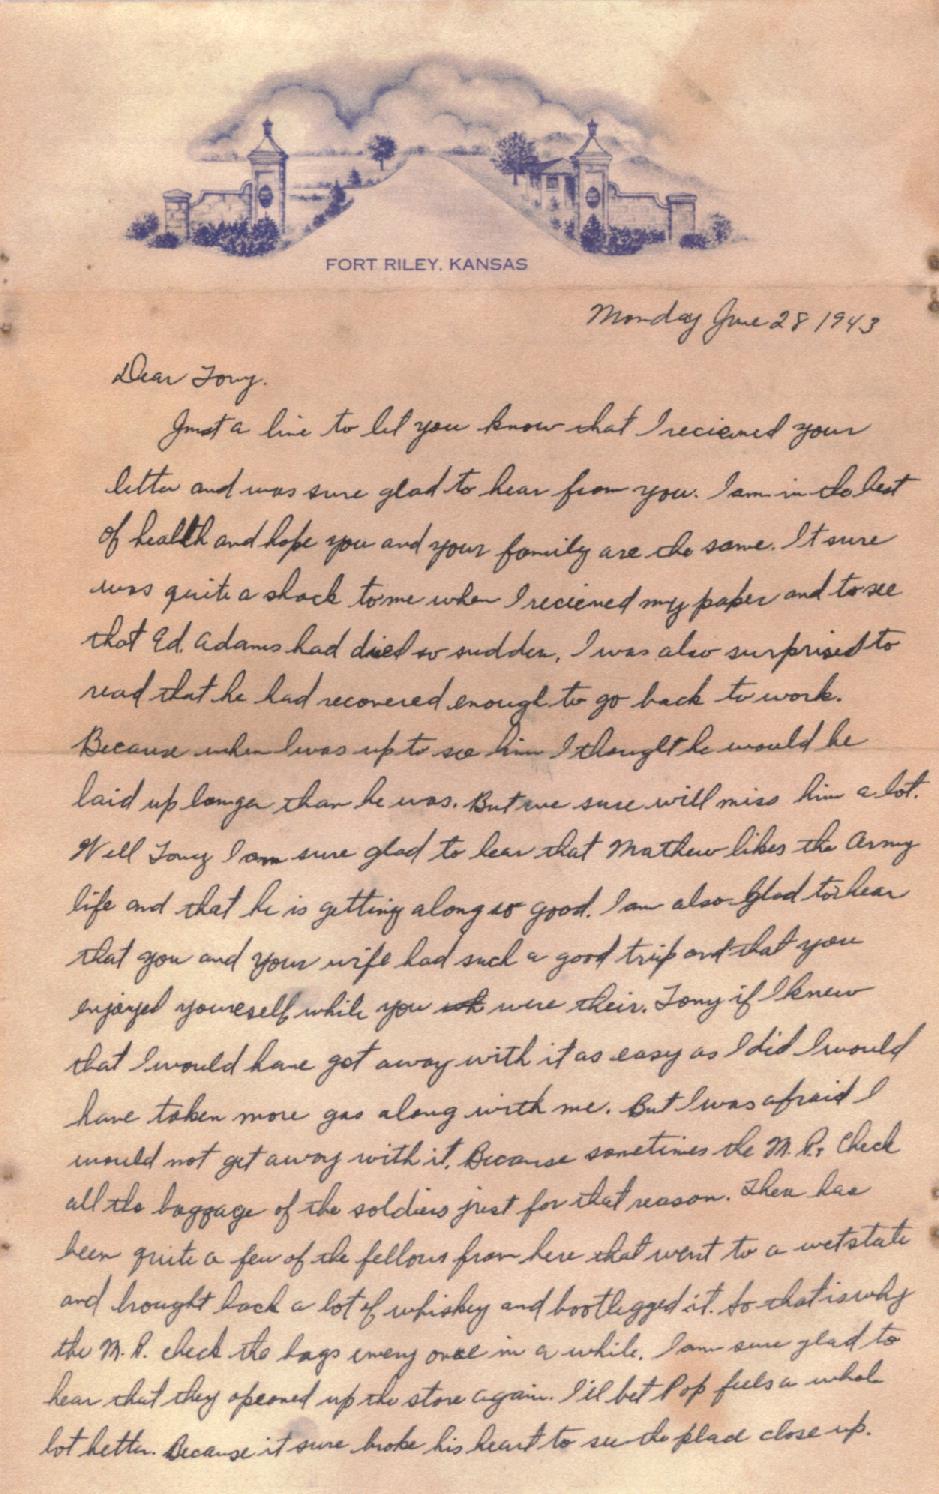 FORT RILEY, KANSAS
Monday June 28 1943
Dear Tony.
Just a line to let you know that I recieved your
letter and was sure glad to hear from you. I am in the best
of health and hope you and your family are the same. It sure
was quite a shock to me when I recieved my paper and to see
that Ed. Adams had died so sudden. I was also surprised to
read that he had recovered enough to go back to work.
Because when I was up to see him I thought he would be
laid up longer than he was. But we sure will miss him a lot.
Well Tony I am sure glad to hear that Mathew likes the Army
life and that he is getting along so good. I am also glad to hear
that you and your wife had such a good trip and that you
enjoyed yourself while you were their. Tony if I knew
that I would have got away with it as easy as I did I would
have taken more gas along with me. But I was afraid I
would not get away with it. Because sometimes the M.P.s check
all the baggage of the soldiers just for that reason. There has
been quite a few of the fellows from here that went to a wet state
and brought back a lot of whiskey and bootlegged it. So that is why
the M.P. check the bags every once in a while. I am sure glad to
hear that they opened up the store again. I'll bet Pop feels a whole
lot better. Because it sure broke his heart to see the place close up.